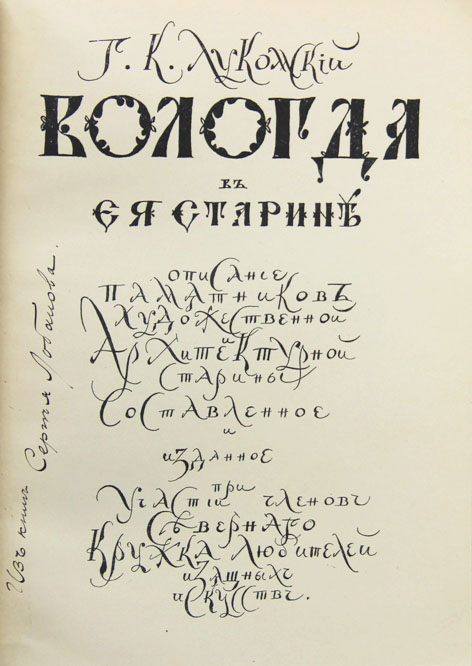 Г. К. Лукомскій
ВОЛОГДА
въ
ЕЯ СТАРИНѢ
описаніе
памятниковъ
художественной
и
архитектурной
старины
составленное
и
изданное
при
участіи членовъ
Сѣвернаго
Кружка Любителей
изящныхъ
искусствъ.
Изъ книгъ Сергея Лобанова.